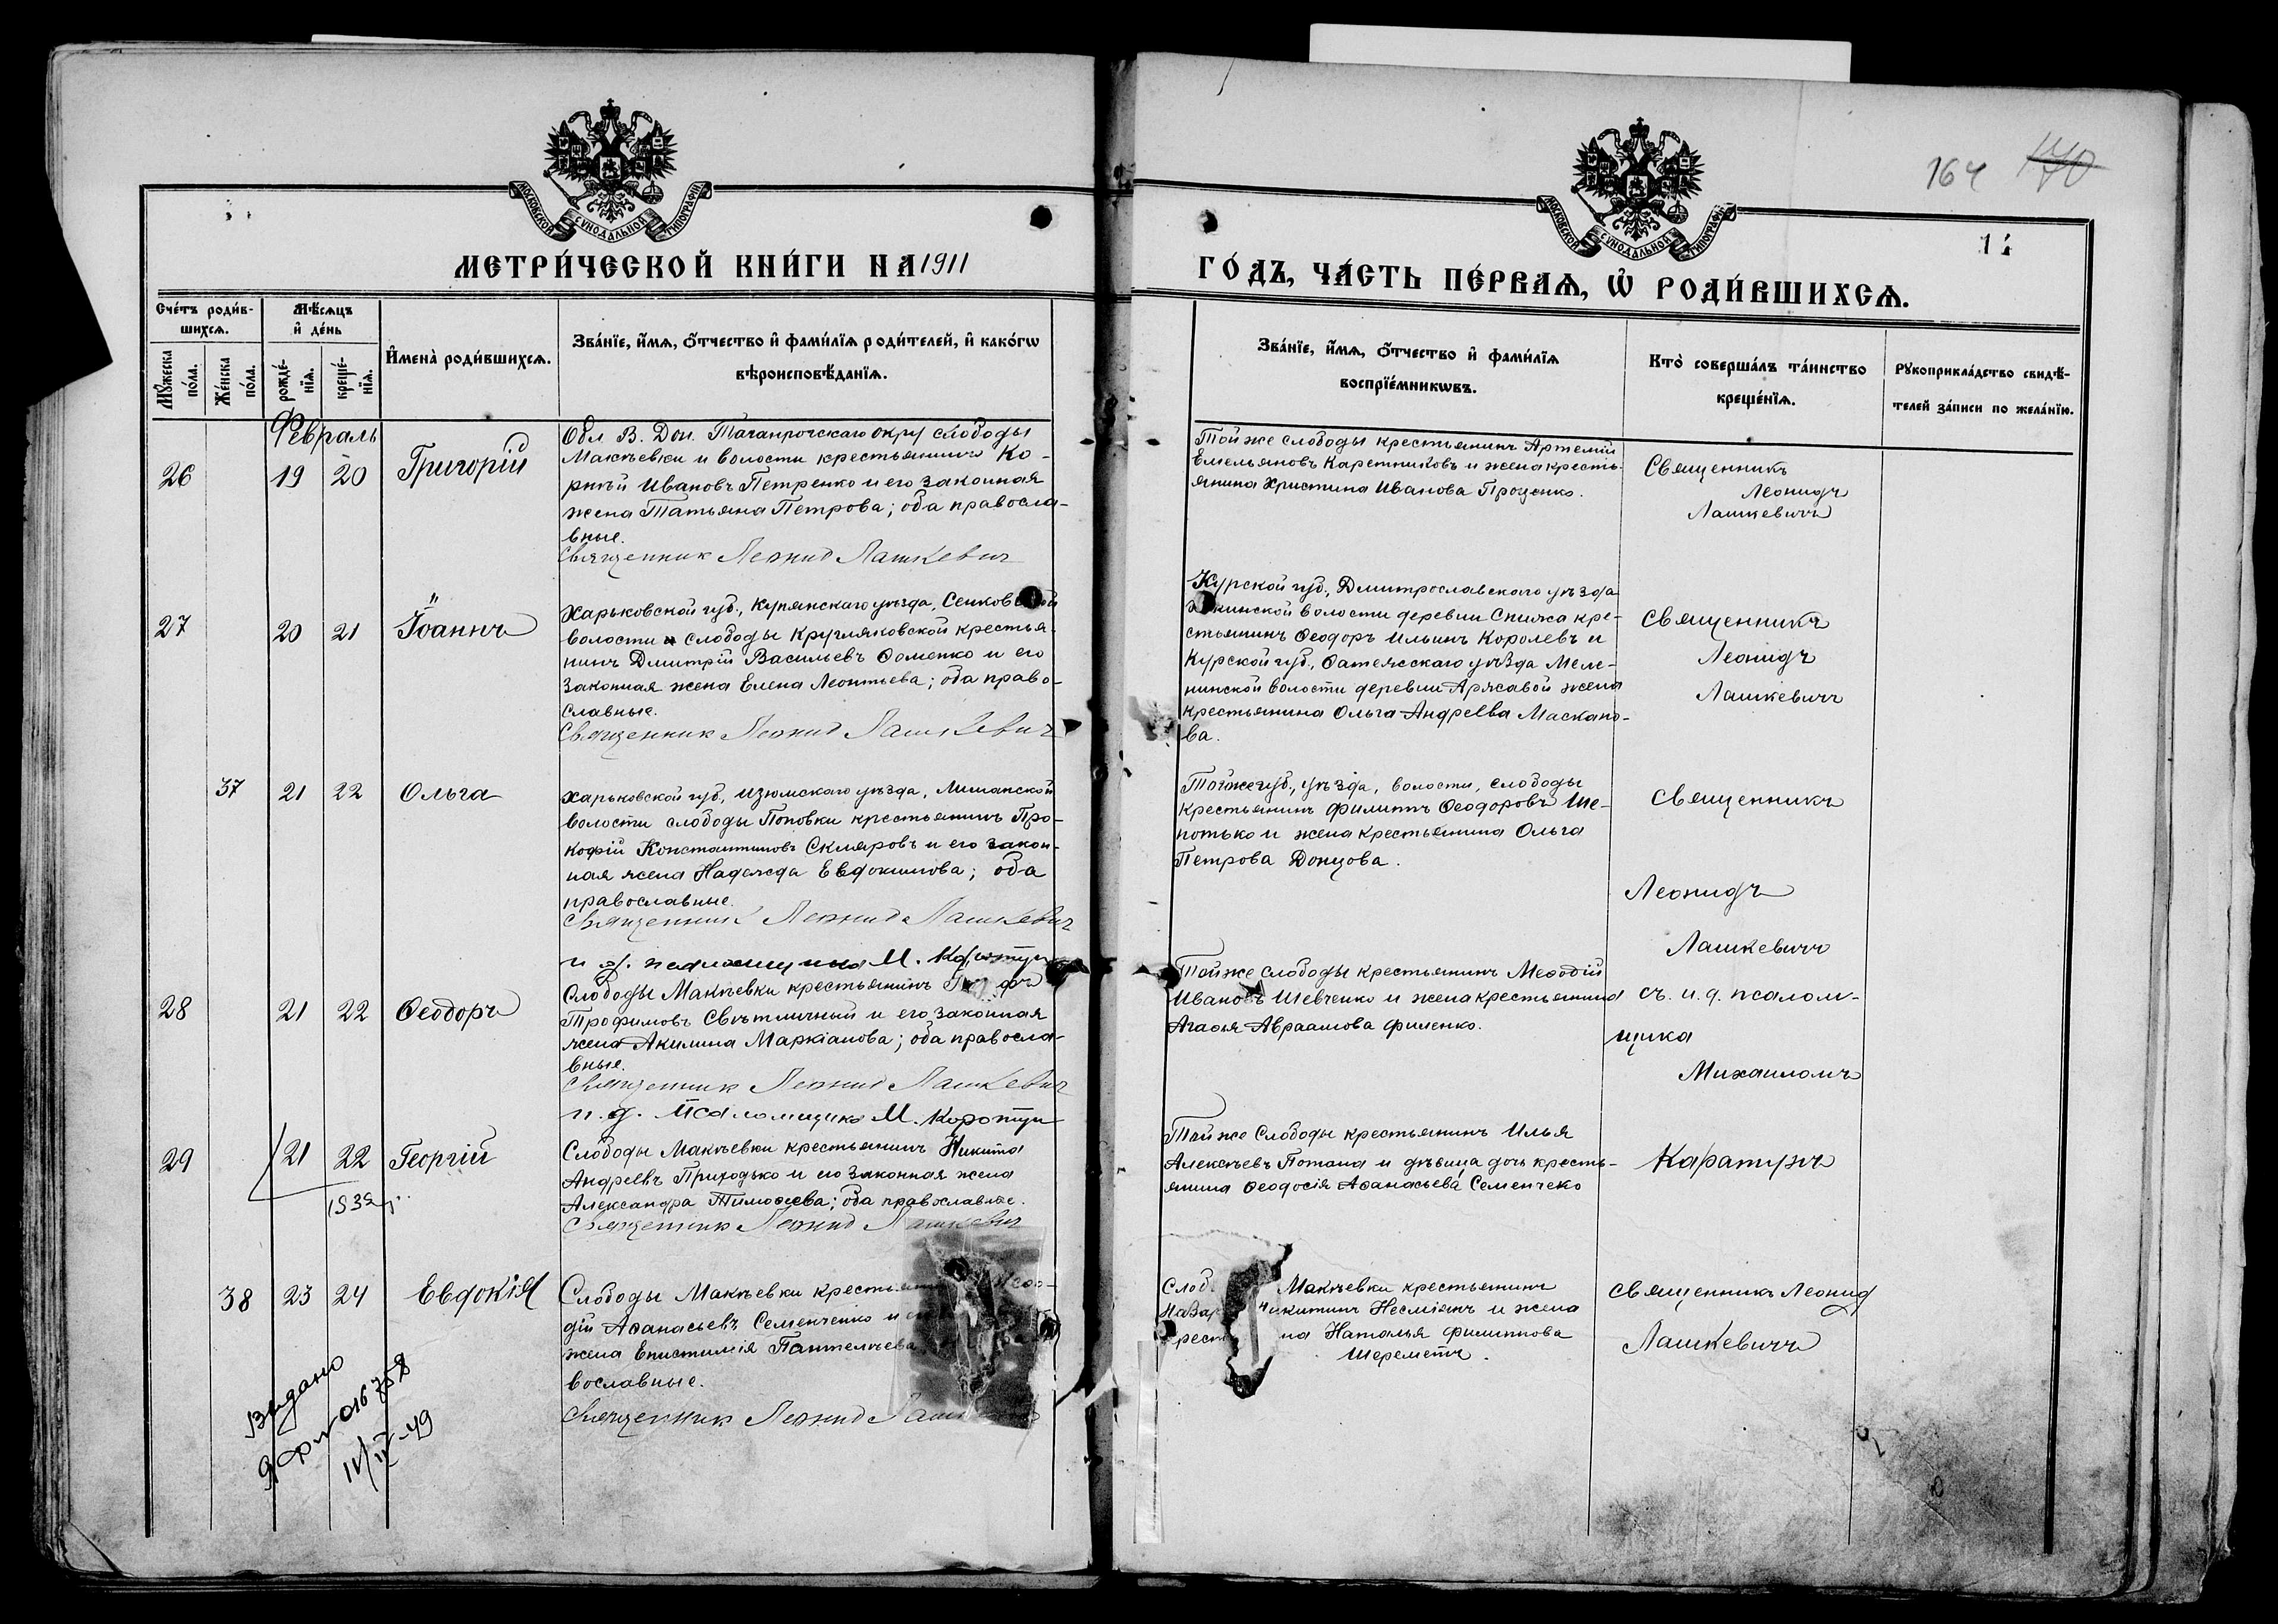 164 170
МОСКОВСКОЙ СУНОДАЛЬНОЙ ТИПОГРАФІИ
МОСКОВСКОЙ СУНОДАЛЬНОЙ ТИПОГРАФІИ
МЕТРИ́ЧЕСКОЙ КНИ́ГИ НА 1911
ГО́ДЪ, ЧА́СТЬ ПЕ́РВАѦ, Ѡ҆ РОДИ́ВШИХСѦ.
Счéтъ роди́в-
шихсѧ.
Мꙋ́жеска пóла.
Жéнска пóла.
Мѣ́сѧцъ
и҆ дéнь
рождé-
нїѧ.
крещé-
нїѧ.
И҆менà роди́вшихсѧ.
Звáнїе, и҆́мѧ, ѻ҆́тчество и҆ фами́лїѧ роди́телей, и҆ какóгѡ
вѣроисповѣ́данїѧ.
Звáнїе, и҆́мѧ, ѻ҆́тчество и҆ фами́лїѧ
воспрїéмникѡвъ.
Ктò совершáлъ тáинство
крещéнїѧ.
Рꙋкоприклáдство свидѣ́-
телей зáписи по желáнїю.
Февраль
26 19 20 Григорій
Обл. В. Дон. Таганрогскаго окру слободы
Макѣевки и волости крестьянинъ Ко-
рнѣй Ивановъ Петренко и его законная
жена Татьяна Петрова; оба правосла-
вные.
Священник Леонид Лашкевич
Той же слободы крестьянинъ Артемій
Емельяновъ Каретниковъ и жена кресть-
янина Христина Иванова Проценко.
Священникъ
Леонидъ
Лашкевичъ
27 20 21 Іоаннъ
Харьковской губ., Купянскаго уѣзда, Сеньковской
волости слободы Кругляковской крестья-
нинъ Дмитрій Васильевъ Ѳоменко и его
законная жена Елена Леонтьева; оба право-
славные.
Священник Леонид Лашкевич
Курской губ., Дмитрославскаго уѣзда
волости деревни Снижа кре-
стьянинъ Ѳеодоръ Ильинъ Королевъ и
Курской губ., Ѳатежскаго уѣзда Меле-
нинской волости деревни Аржавой жена
крестьянина Ольга Андреева Маскано-
ва.
Священникъ
Леонидъ
Лашкевичъ
37 21 22 Ольга
Харьковской губ, Изюмскаго уѣзда, Лиманской
волости слободы Поповки крестьянинъ Про-
кофій Константиновъ Скляровъ и его закон-
ная жена Надежда Евдокимова; оба
православные.
Священник Леонид Лашкевич
и д. псаломщика М.
Той же губ., уѣзда, волости, слободы
крестьянинъ Филиппъ Ѳеодоровъ Ше-
потько и жена крестьянина Ольга
Петрова Донцова.
Священникъ
Леонидъ
Лашкевичъ
28 21 22 Ѳеодоръ
Слободы Макѣевки крестьянинъ
Трофимовъ Свѣтличный и его законная
жена Акилина Маркіанова; оба правосла-
вные.
Священник Леонид Лашкевич
и. д. Псаломщика М.
Той же слободы крестьянинъ Меѳодій
Ивановъ Шевченко и жена крестьянина
Агаѳья Авраамова Филенко.
съ и. д. псалом-
щика
Михаиломъ
29 21 22 Георгій
Слободы Макѣевки крестьянинъ Никита
Андреевъ Приходько и его законная жена
Александра Тимоѳеева; оба православные.
Священник Леонид Лашкевич
Той же Слободы крестьянинъ Илья
Алексѣевъ Потапа и дѣвица дочь кресть-
янина Ѳеодосія Аѳанасьева Семенчеко
Каратунъ
38 23 24 Евдокія
Слободы Макѣевки
дій Аѳанасьевъ Семенченко и
жена Епистимія Пантелѣева
вославные.
Священник Леонид
Слоб Макѣевки крестьянинъ
Назар Никитинъ Несміянъ и жена
крест на Наталья Филиппова
Шереметъ.
Священникъ Леонид
Лашкевичъ
Видано
016758
11/IV-49